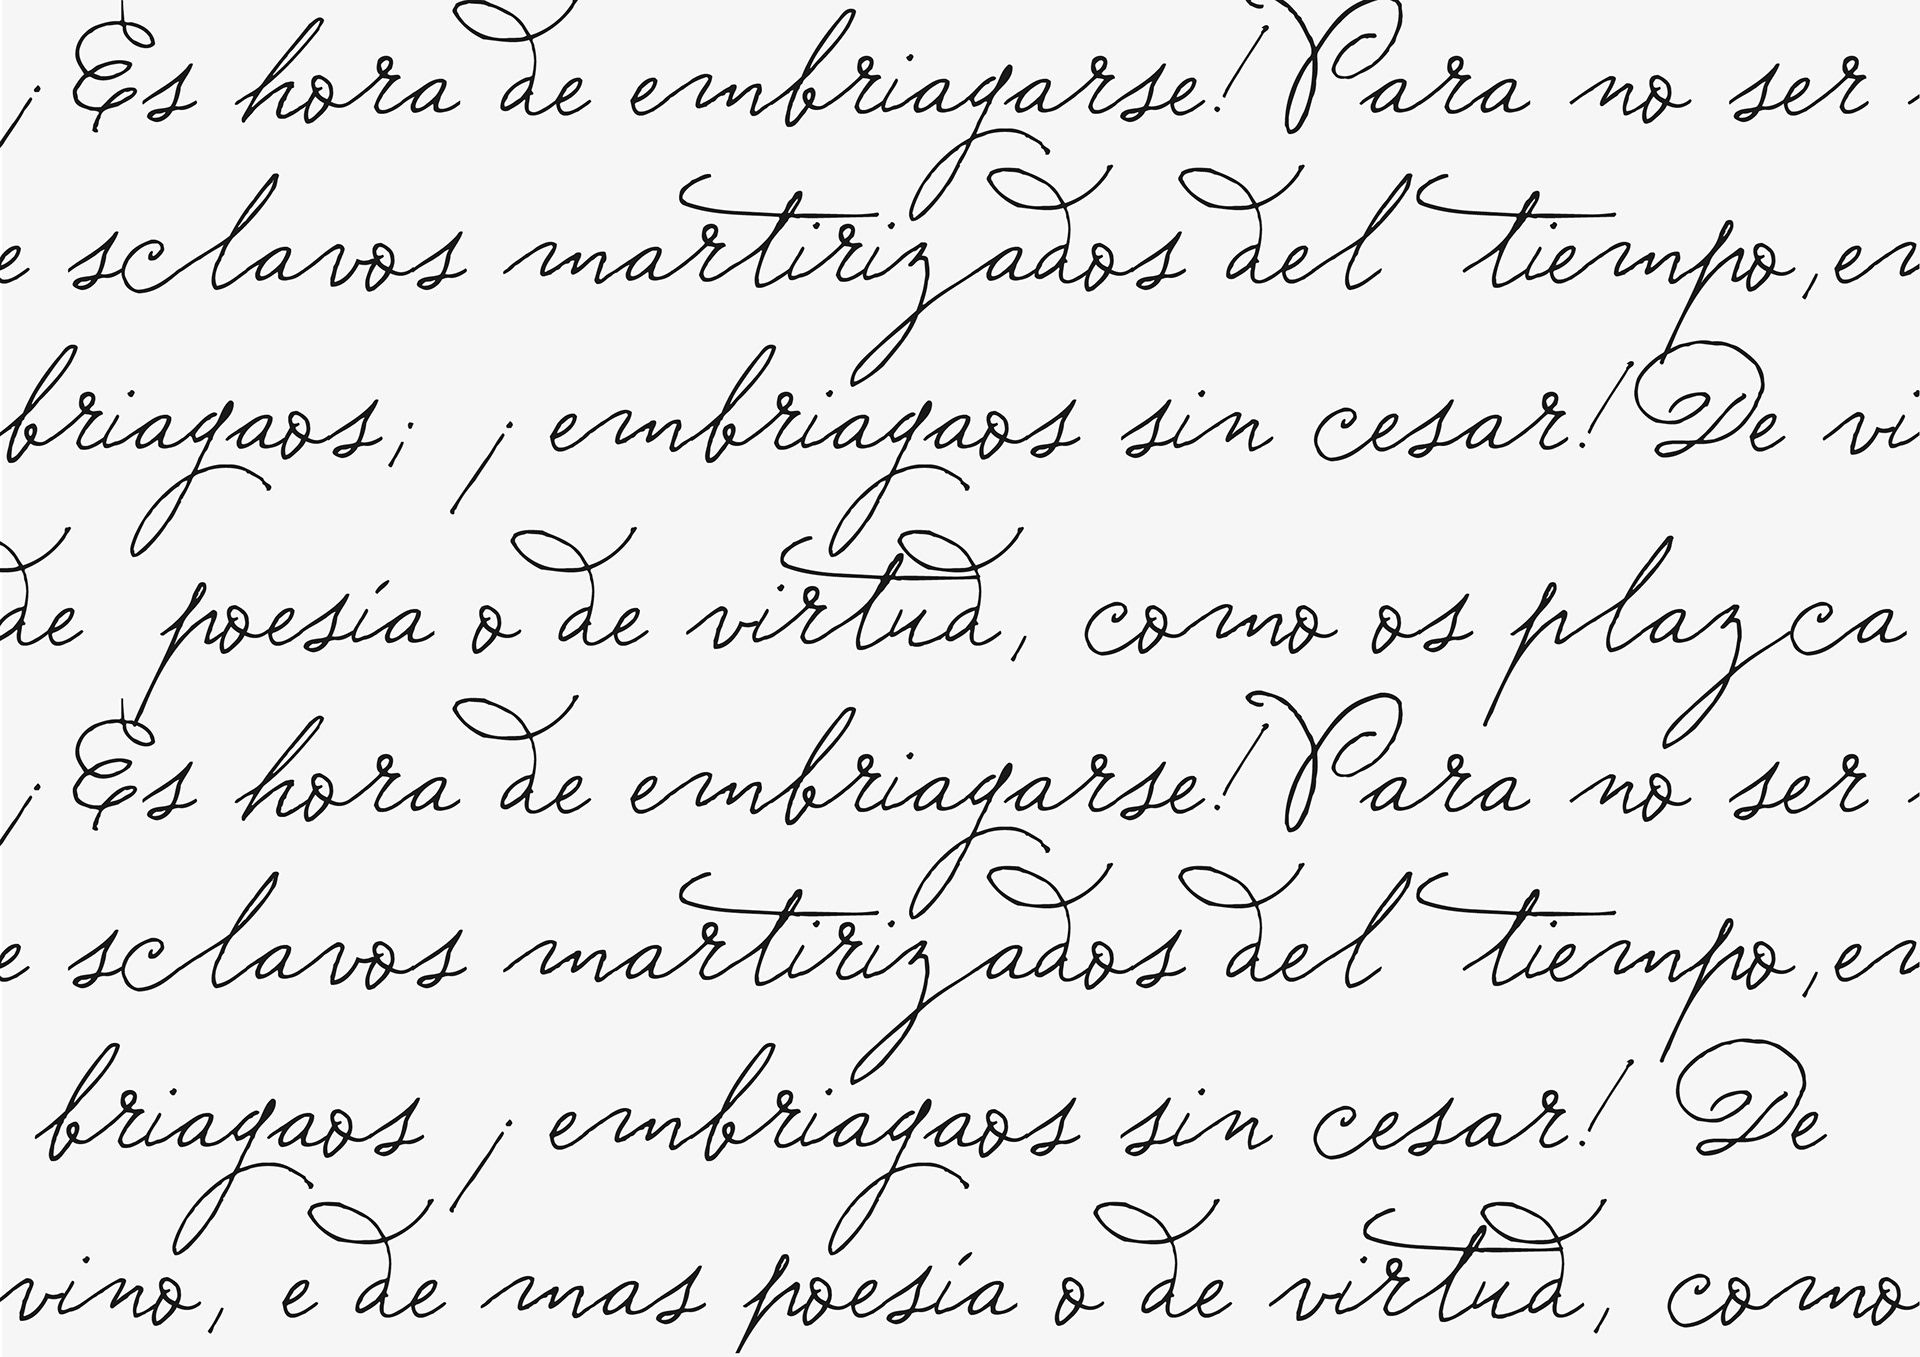 ¡Es hora de embriagarse! Para no ser
e sclavos martirizados del tiempo, em
briagaos; ¡embriagaos sin cesar! De vi
de poesía o de virtud, como os plazca
¡Es hora de embriagarse! Para no ser
e sclavos martirizados del tiempo, em
briagaos ¡embriagaos sin cesar! De
vino, e de mas poesía o de virtud, como